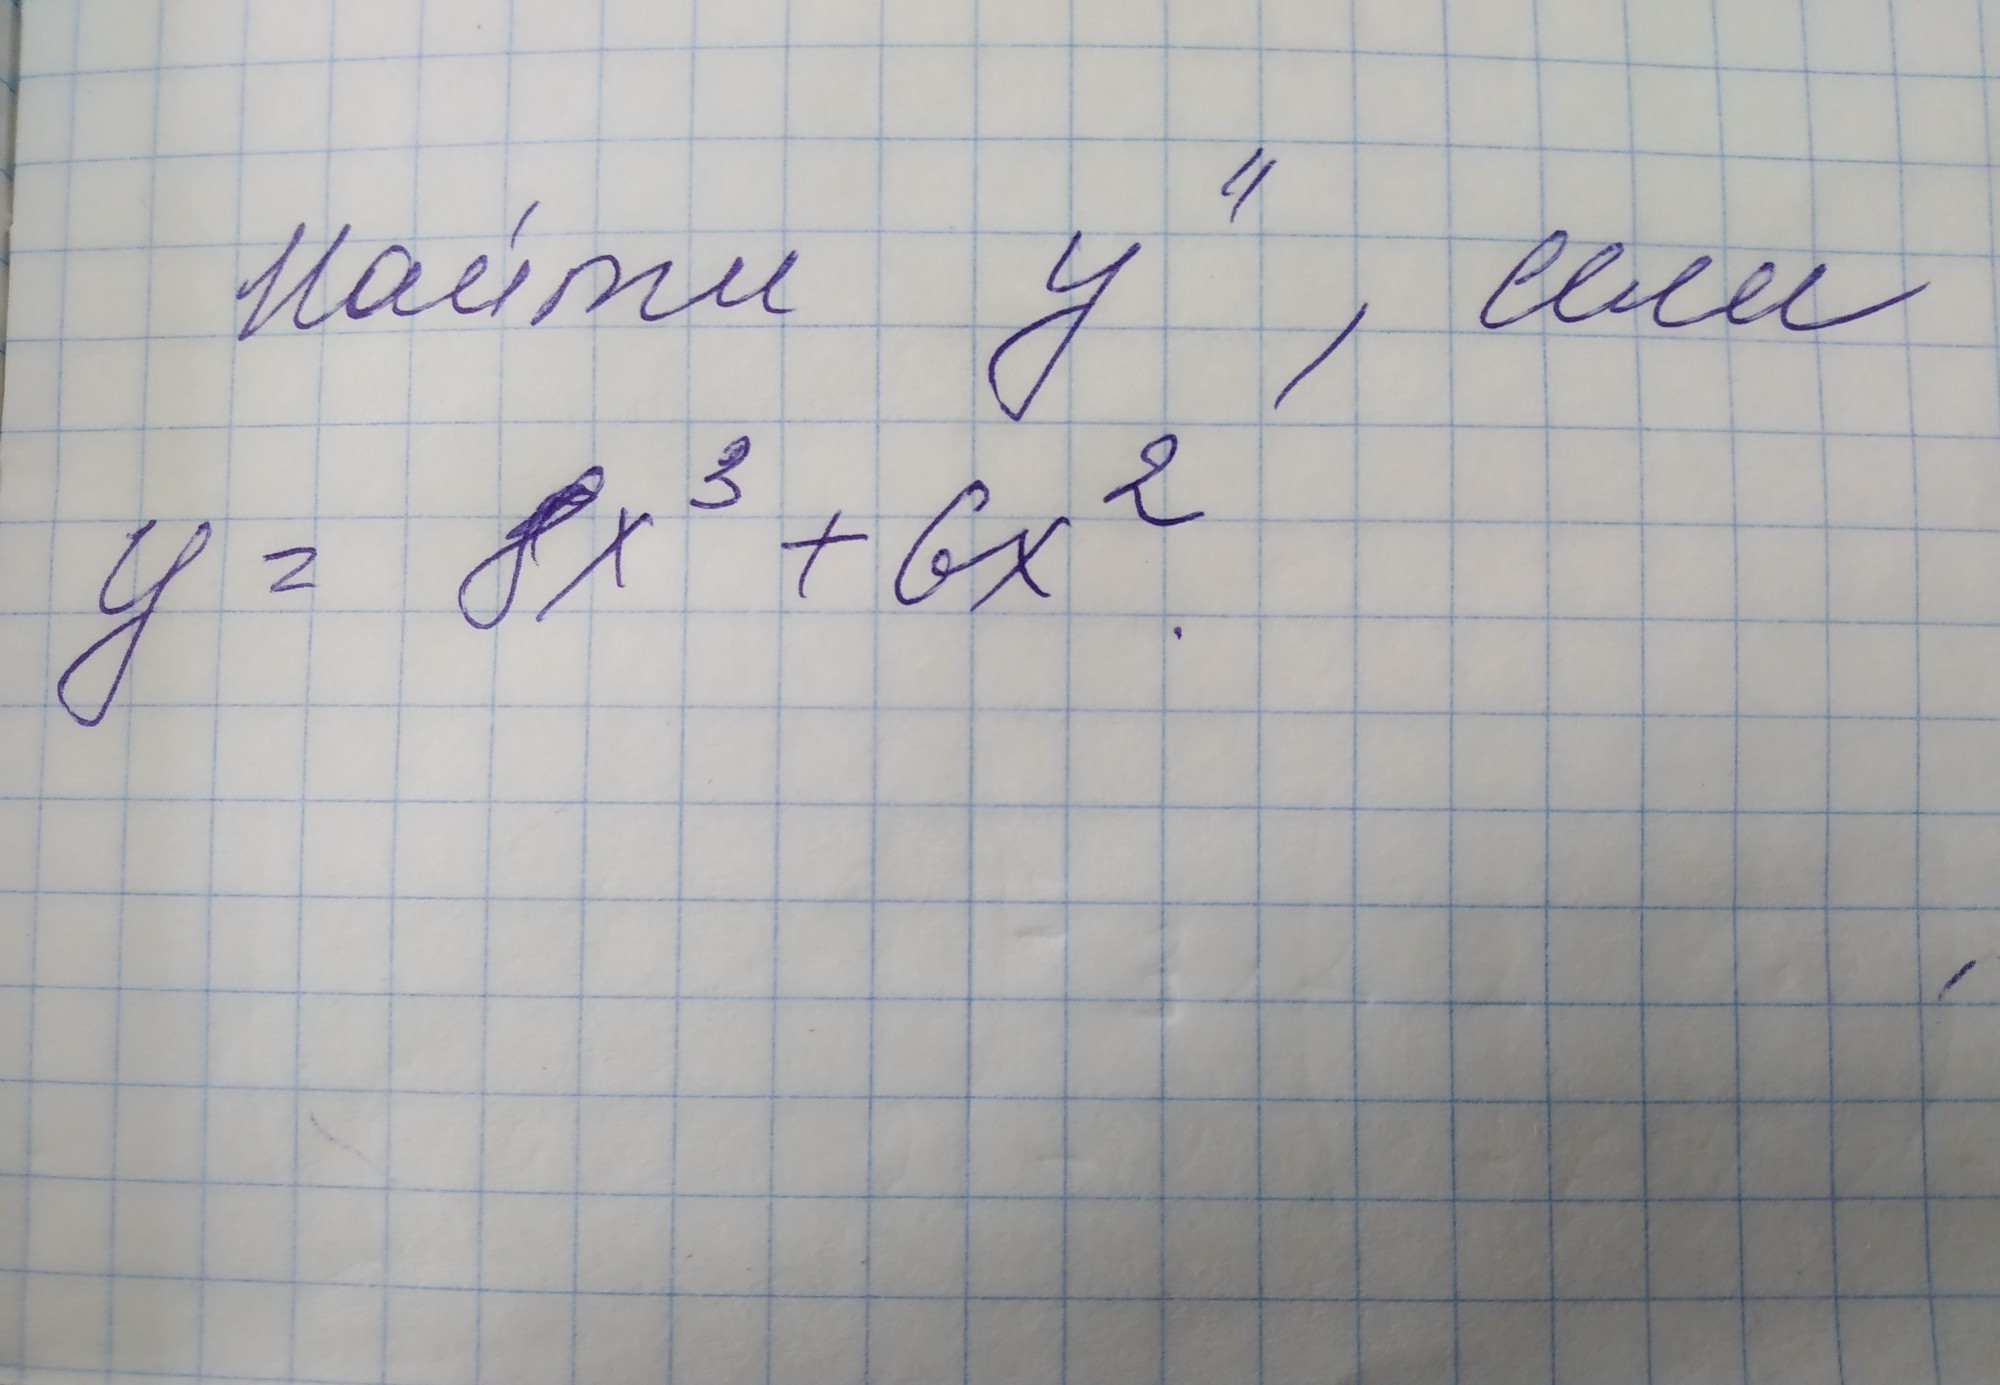 Найти y'', если
y = 8x³ + 6x².